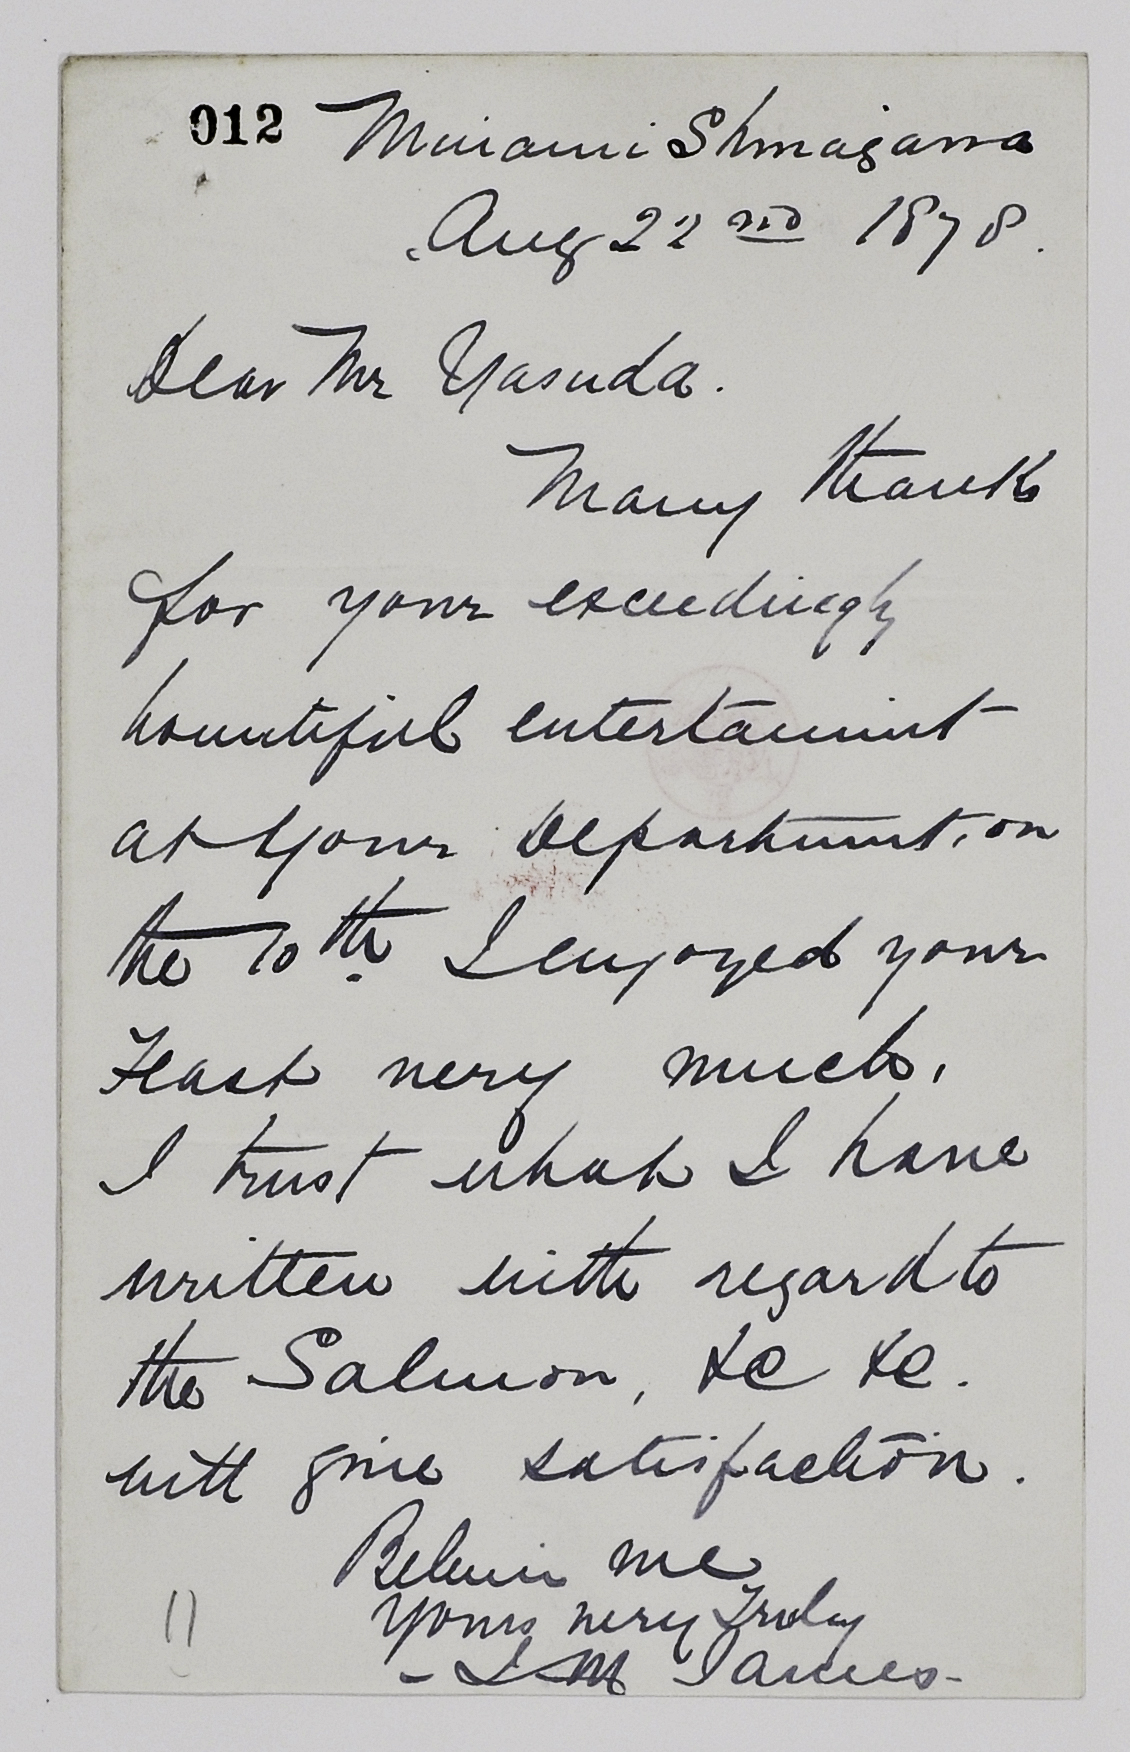 012 Minami Shinagawa
Aug 22nd 1878.
Dear Mr Yasuda.
Many thanks
for your exceedingly
bountiful entertainment
at your Department, on
the 10th. I enjoyed your
Feast very much,
I trust what I have
written with regard to
the Salmon, &c &c.
will give satisfaction.
Believe me
Yours very Truly
- J M James -
11